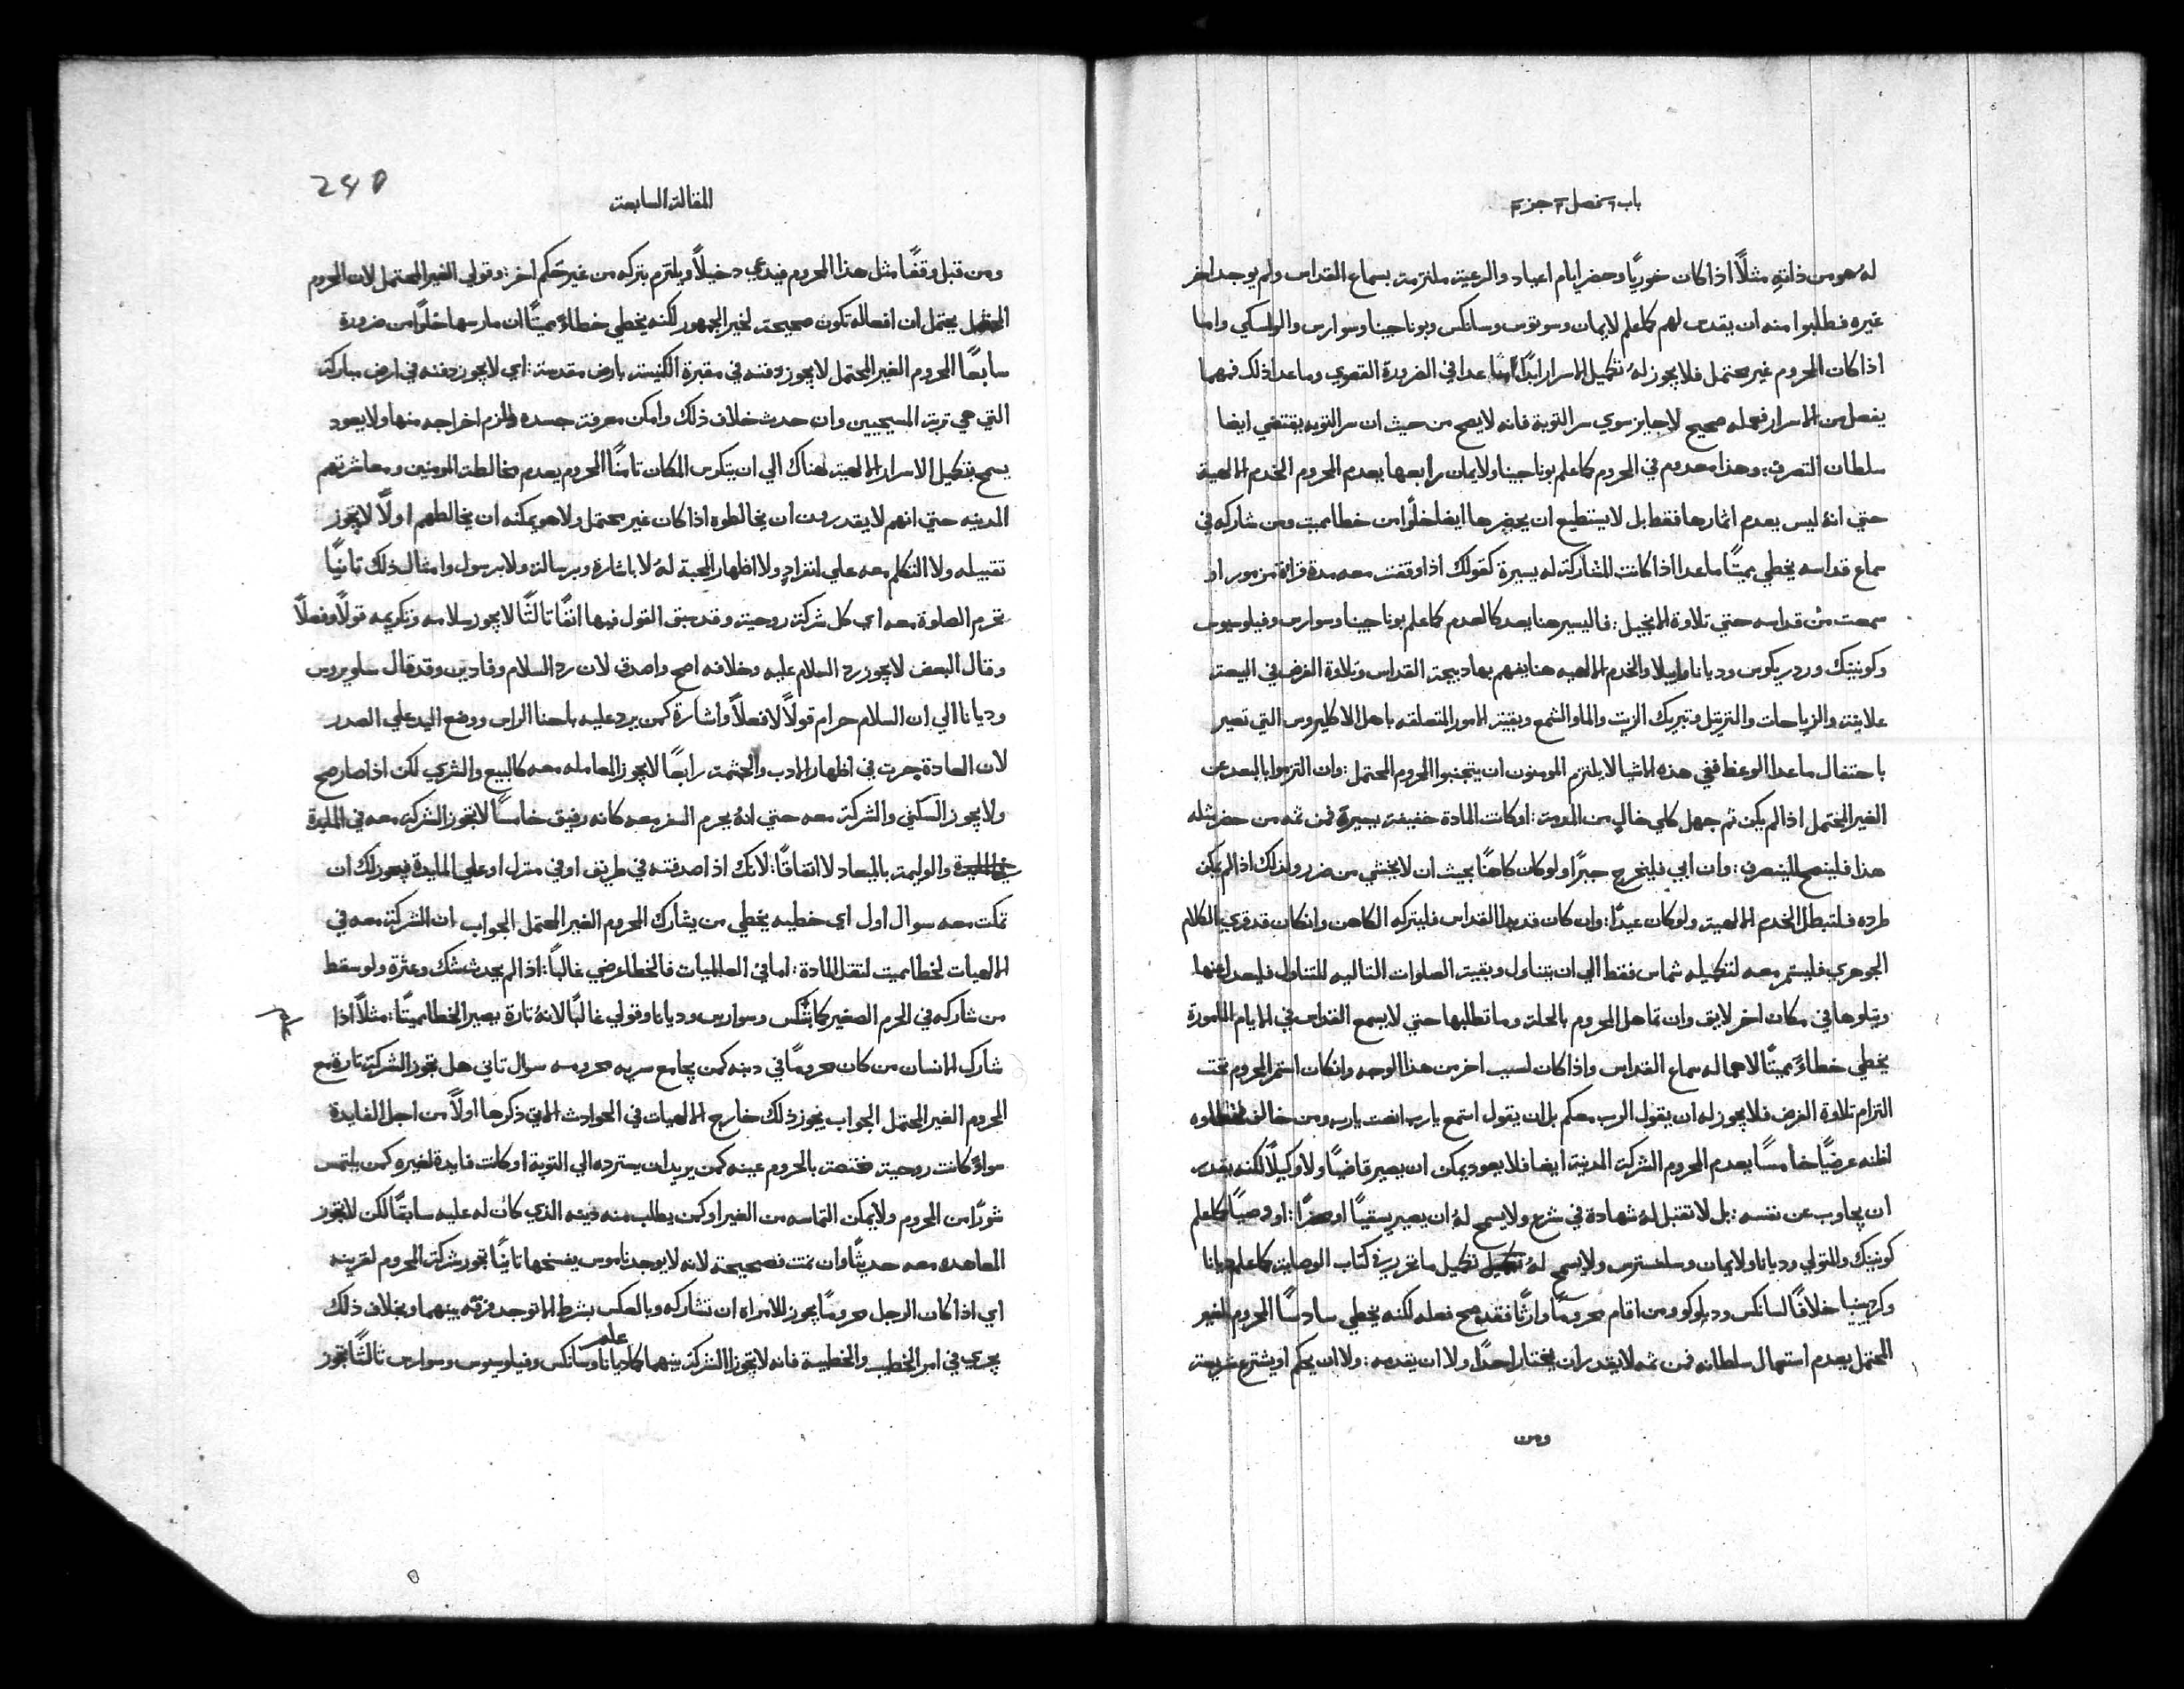 باب ٦ فصل ٣ جزء ٣
له هو من ذاته مثلاً اذا كان خوريًا وحضر ايام اعياد والرعية ملتزمة بسماع القداس ولم يوجد اخر
غيره فطلبوا منه ان يقدس لهم كما علم لايمان وسوتوس وسانكس وبوناجينا وسوارس واما
اذا كان المحروم غير محتمل فلا يجوز له تكميل الاسرار ابدًا ما عدا في الضرورة القصوي وما عدا ذلك فمهما
يفعل من الاسرار فعله صحيح لا جايز سوي سر التوبة فانه لا يصح من حيث ان سر التوبه يقتضي ايضا
سلطان التصرف: وهذا معدوم في المحروم كما علم بوناجينا ولايمان رابعها يعدم المحروم الخدم الالهية
حتي انه ليس يعدم اثمارها فقط بل لا يستطيع ان يحضرها ايضا خلوًا من خطا مميت ومن شاركه في
سماع قداسه يخطي مميتًا ما عدا اذا كانت المشاركة له يسيرة كقولك اذا وقفت معه مدة قراة مزمور او
سمعت من قداسه حتي تلاوة الانجيل: فاليسير هنا يعد كالعدم كما علم بوناجينا وسوارس وفيلوسيوس
وكونينك وردريكوس وديانا وابيلا والخدم الالهيه هنا يفهم بها ذبيحة القداس وتلاوة الفرض في البيعة
علانية والزياحات والترتيل وتبريك الزيت والما والشمع وبقية الامور المتعلقه باهل الاكليروس التي تصير
باحتفال ما عدا الوعظ ففي هذه الاشيا لا يلتزم المومنون ان يتجنبوا المحروم المحتمل: وان التزموا بالبعد عن
الغير المحتمل اذا لم يكن ثم جهل كلي خالٍ من اللوم: او كانت المادة خفيفة يسيرة فمن ثمه من حضر مثله
هذا فلينصح لينصرف: وان ابي فليخرج جبرًا ولو كان كاهنًا بحيث ان لا يخشي من ضرر ولذلك اذا لم يمكن
طرده فلتبطل الخدم الالهية ولو كان عيدًا: وان كان قد بدا القداس فليتركه الكاهن وان كان قد قري الكلام
الجوهري فليستمر معه لتكميله شماس فقط الي ان يتناول وبقية الصلوات التاليه للتناول فليعدل عنها
ويتلوها في مكان اخر لايق وان تماهل المحروم بالحلة وما تطلبها حتي لا يسمع القداس في الايام المامورة
يخطي خطاءً مميتًا لاهماله سماع القداس واذا كان لسبب اخر من هذا الوجه وان كان استمر المحروم تحت
التزام تلاوة الفرض فلا يجوز له ان يقول الرب معكم بل ان يقول استمع يا رب انصت يا رب ومن خالف فخطاوه
اظنه عرضيًا خامسًا يعدم المحروم الشركة المدنية ايضا فلا يعود يمكن ان يصير قاضيًا ولا وكيلًا لكنه يقدر
ان يجاوب عن نفسه: بل لا تقبل له شهادة في شرع ولا يسمح له ان يصير او وصيًا كما علم
كونينك والمتولي وديانا ولايمان وسلفسترس ولا يسمح له تكميل ما تحرر في كتاب الوصاية كما علم ديانا
وكردينيا خلافًا لسانكس وديلوكو ومن اقام محرومًا وارثًا فقد صح فعله لكنه يخطي سادسًا المحروم الغير
المحتمل يعدم استعمال سلطانه فمن ثمه لا يقدر ان يختار احدًا ولا ان يقدمه: ولا ان يحكم او يشترع شريعة
ومن
المقالة السابعة
240
ومن قبل وقفًا مثل هذا المحروم فيدعي دخيلاً ويلتزم بتركه من غير حكم اخر: وقولي الغير المحتمل لان المحروم
المحتمل يحتمل ان افعاله تكون صحيحة لخير الجمهور لكنه يخطي خطاءً مميتًا ان مارسها خلوًا من ضرورة
سابعًا المحروم الغير المحتمل لا يجوز دفنه في مقبرة الكنيسة بارض مقدسة: اي لا يجوز دفنه في ارض مباركة
التي هي تربة المسيحيين وان حدث خلاف ذلك وامكن معرفة جسده فالزم اخراجه منها ولا يعود
يسمح بتكميل الاسرار الالهية هناك الي ان يتكرس المكان ثامنًا المحروم يعدم مخالطة المومنين ومعاشرتهم
المدنيه حتي انهم لا يقدرون ان يخالطوه اذا كان غير محتمل ولا هو يمكنه ان يخالطهم اولًا لا يجوز
تقبيله ولا التكلم معه علي انفرادٍ ولا اظهار المحبة له لا باشارة وبرسالة ولا برسول وامثال ذلك ثانيًا
تحرم الصلوة معه اي كل شركة روحية وقد سبق القول فيها انفًا ثالثًا لا يجوز سلامه وتكريمه قولًا وفعلًا
وقال البعض لا يجوز رد السلام عليه وخلافه اصح واصدق لان رد السلام وفا دين وقد قال سلويروس
وديانا الي ان السلام حرام قولًا لا فعلاً واشارة كمن يرد عليه باحنا الراس ووضع اليد علي الصدر
لان العادة جرت في اظهار الادب والحشمة رابعًا لا يجوز المعامله معه كالبيع والشري لكن اذا صار صح
ولا يجوز السكني والشركة معه حتي انه يحرم السفر معه كانه رفيق خامسًا لا تجوز الشركه معه في المايدة
والوليمة بالميعاد لا اتفاقًا: لانك اذا صدفته في طريق او في منزل او علي المايدة فيجوز لك ان
تمكث معه سوال اول اي خطيه يخطي من يشارك المحروم الغير المحتمل الجواب ان الشركة معه في
الالهيات لخطا مميت لثقل المادة: اما في العالميات فالخطا عرضي غالبًا: اذا لم يحدث شك وعثرة ولو سقط
من شاركه في الحرم الصغير كما سانكس وسوارس وديانا وقولي غالبًا لانه تارة يصير الخطا مميتًا: مثلًا اذا
شارك الانسان من كان محرومًا في دينه كمن يجامع سريه محرومه سوال ثاني هل تجوز الشركة تارة مع
المحروم الغير المحتمل الجواب يجوز ذلك خارج الالهيات في الحوادث الاتي ذكرها اولًا من اجل الفايدة
سواءً كانت روحية مختصة بالمحروم عينه كمن يريد ان يسترده الي التوبة او كانت فايدة لغيره كمن يلتمس
شورًا من المحروم ولا يمكن التماسه من الغير او كمن يطلب منه دينه الذي كان له عليه سابقًا لكن لا تجوز
المعاهده معه حديثًا وان تمت فصحيحة لانه لا يوجد ناموس يفسخها ثانيًا تجوز شركة المحروم لقرينه
اي اذا كان الرجل محرومًا يجوز للامراه ان تشاركه وبالعكس بشرط الا توجد فرقه بينهما وبخلاف ذلك
يجري في امر الخطيب والخطيبة فانه لا تجوز الشركة بينهما كما علم ديانا وسانكس وفيلوسيوس وسوارس ثالثًا تجوز